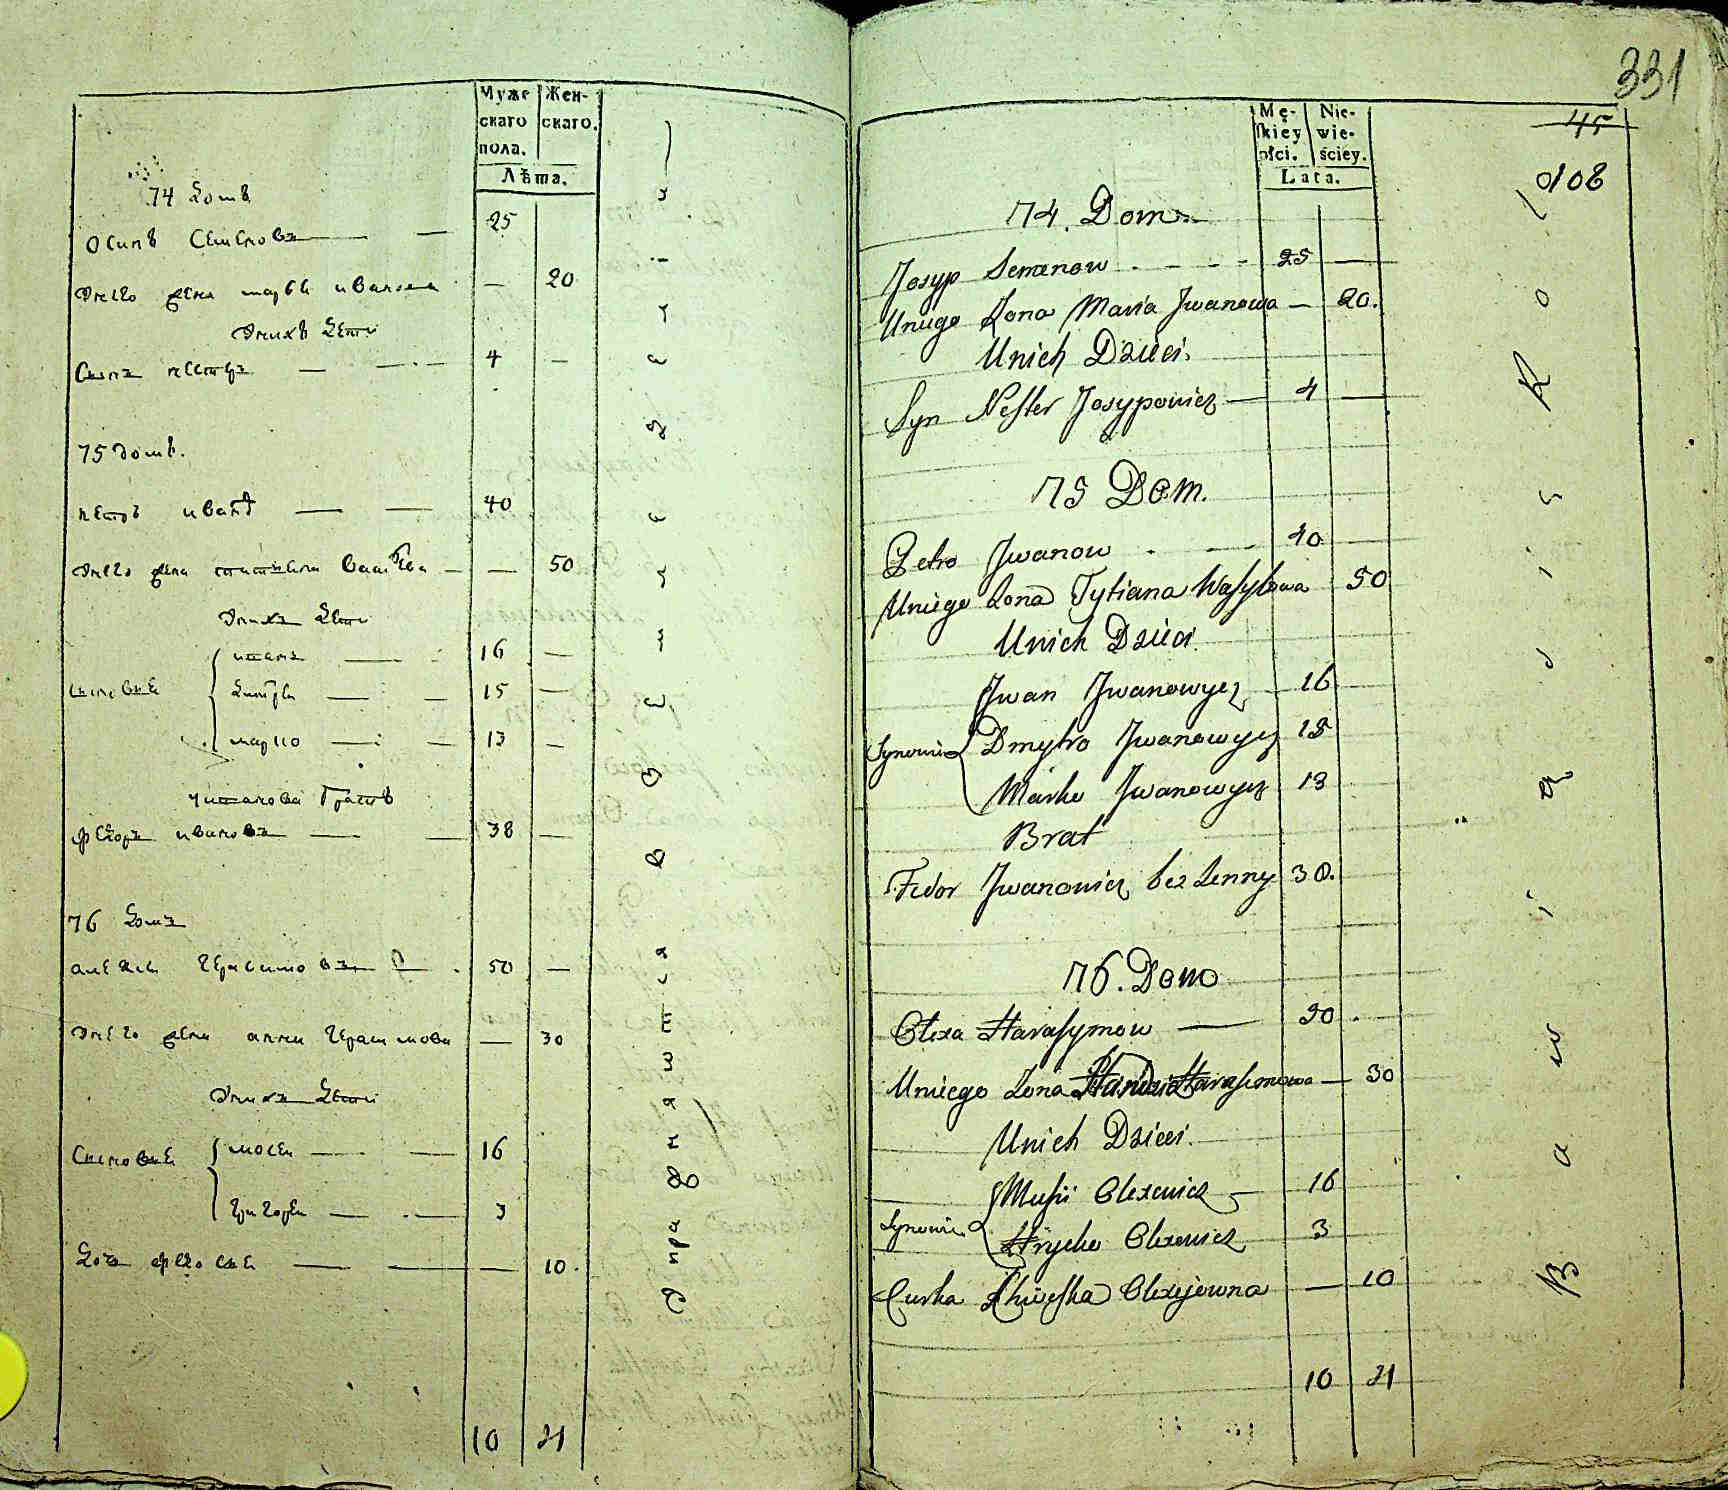 Муже
скаго
пола.
Жен-
скаго.
Лѣта.
74 домъ
Осипъ Семеновъ — — 25
Унего жена марья иванова — 20
Унихъ дети
Сынъ нестеръ — — 4 —
75 домъ.
петръ иванъ — — 40
Унего жена татияна — — 50
Унихъ дети
Сыновья
иванъ — 16 —
дмитри — — 15 —
марко — — 13 —
братъ
федоръ ивановъ — — 38 —
76 домъ
алексѣи герасимовъ — 50 —
Унего жена анна герасимова — 30
Унихъ дети
Сыновья
мосеи — — 16
григореи — — 3
дочь — — — 10.
10 21
331
45
108
Mę-
skiey
płci.
Nie-
wie-
ściey.
Lata.
74. Dom
Josyp Semenow - - - - 25 —
Uniego Zona Maria Jwanowa — 20.
Unich Dzieci.
Syn Nester Josypowicz — 4 —
75 Dom.
Petro Jwanow - — 40 —
Uniego Zona Tytiana Wasylowa 50
Unich Dzieci
Synowie
Jwan Jwanowycz — 16
Dmytro Jwanowycz 15
Marko Jwanowycz 13
Brat
Fedor Jwanowicz bez Zenny 38.
76. Dom
Olexa Harasymow — 50 .
Uniego Zona Harasimowa — 30
Unich Dzieci.
Synowie
Musii Olexewicz — 16
Hrycko Olexewicz 3
Curka Olexejowna — 10
10 21